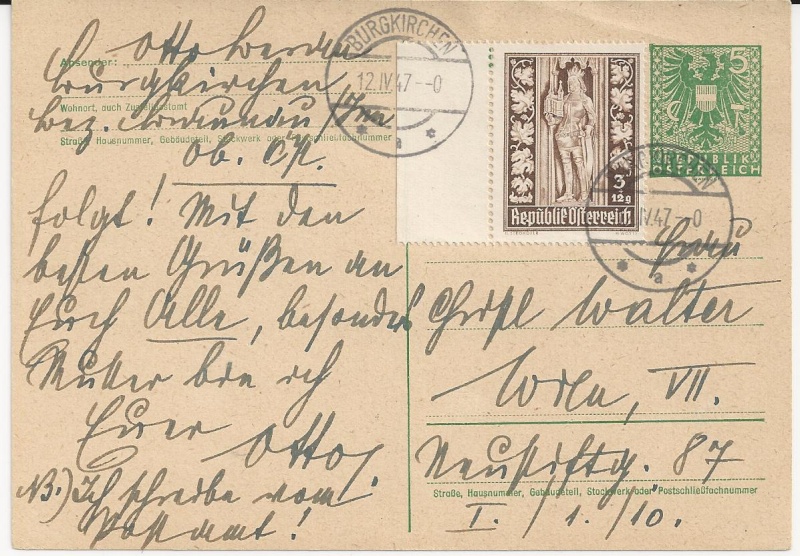 Absender: Otto
Burgkirchen
Wohnort, auch Zustellpostamt
Bez. Braunau/Inn
Straße, Hausnummer, Gebäudeteil, Stockwerk oder Postschließfachnummer
Ob. Öst.
folgt! Mit den
besten Grüßen an
Euch Alle, besonders
Mutter bin ich
Euer Otto.
NB.) Ich schreibe vom
Postamt!
BURGKIRCHEN
12.IV.47.--0
* a *
3
+
12g
Republik Österreich
5
REPUBLIK
OSTERREICH
BURGKIRCHEN
IV.47.--0
* a *
Frau
Christl Walter
Wien, VII.
Neustiftg. 87
Straße, Hausnummer, Gebäudeteil, Stockwerk oder Postschließfachnummer
I./1./10.